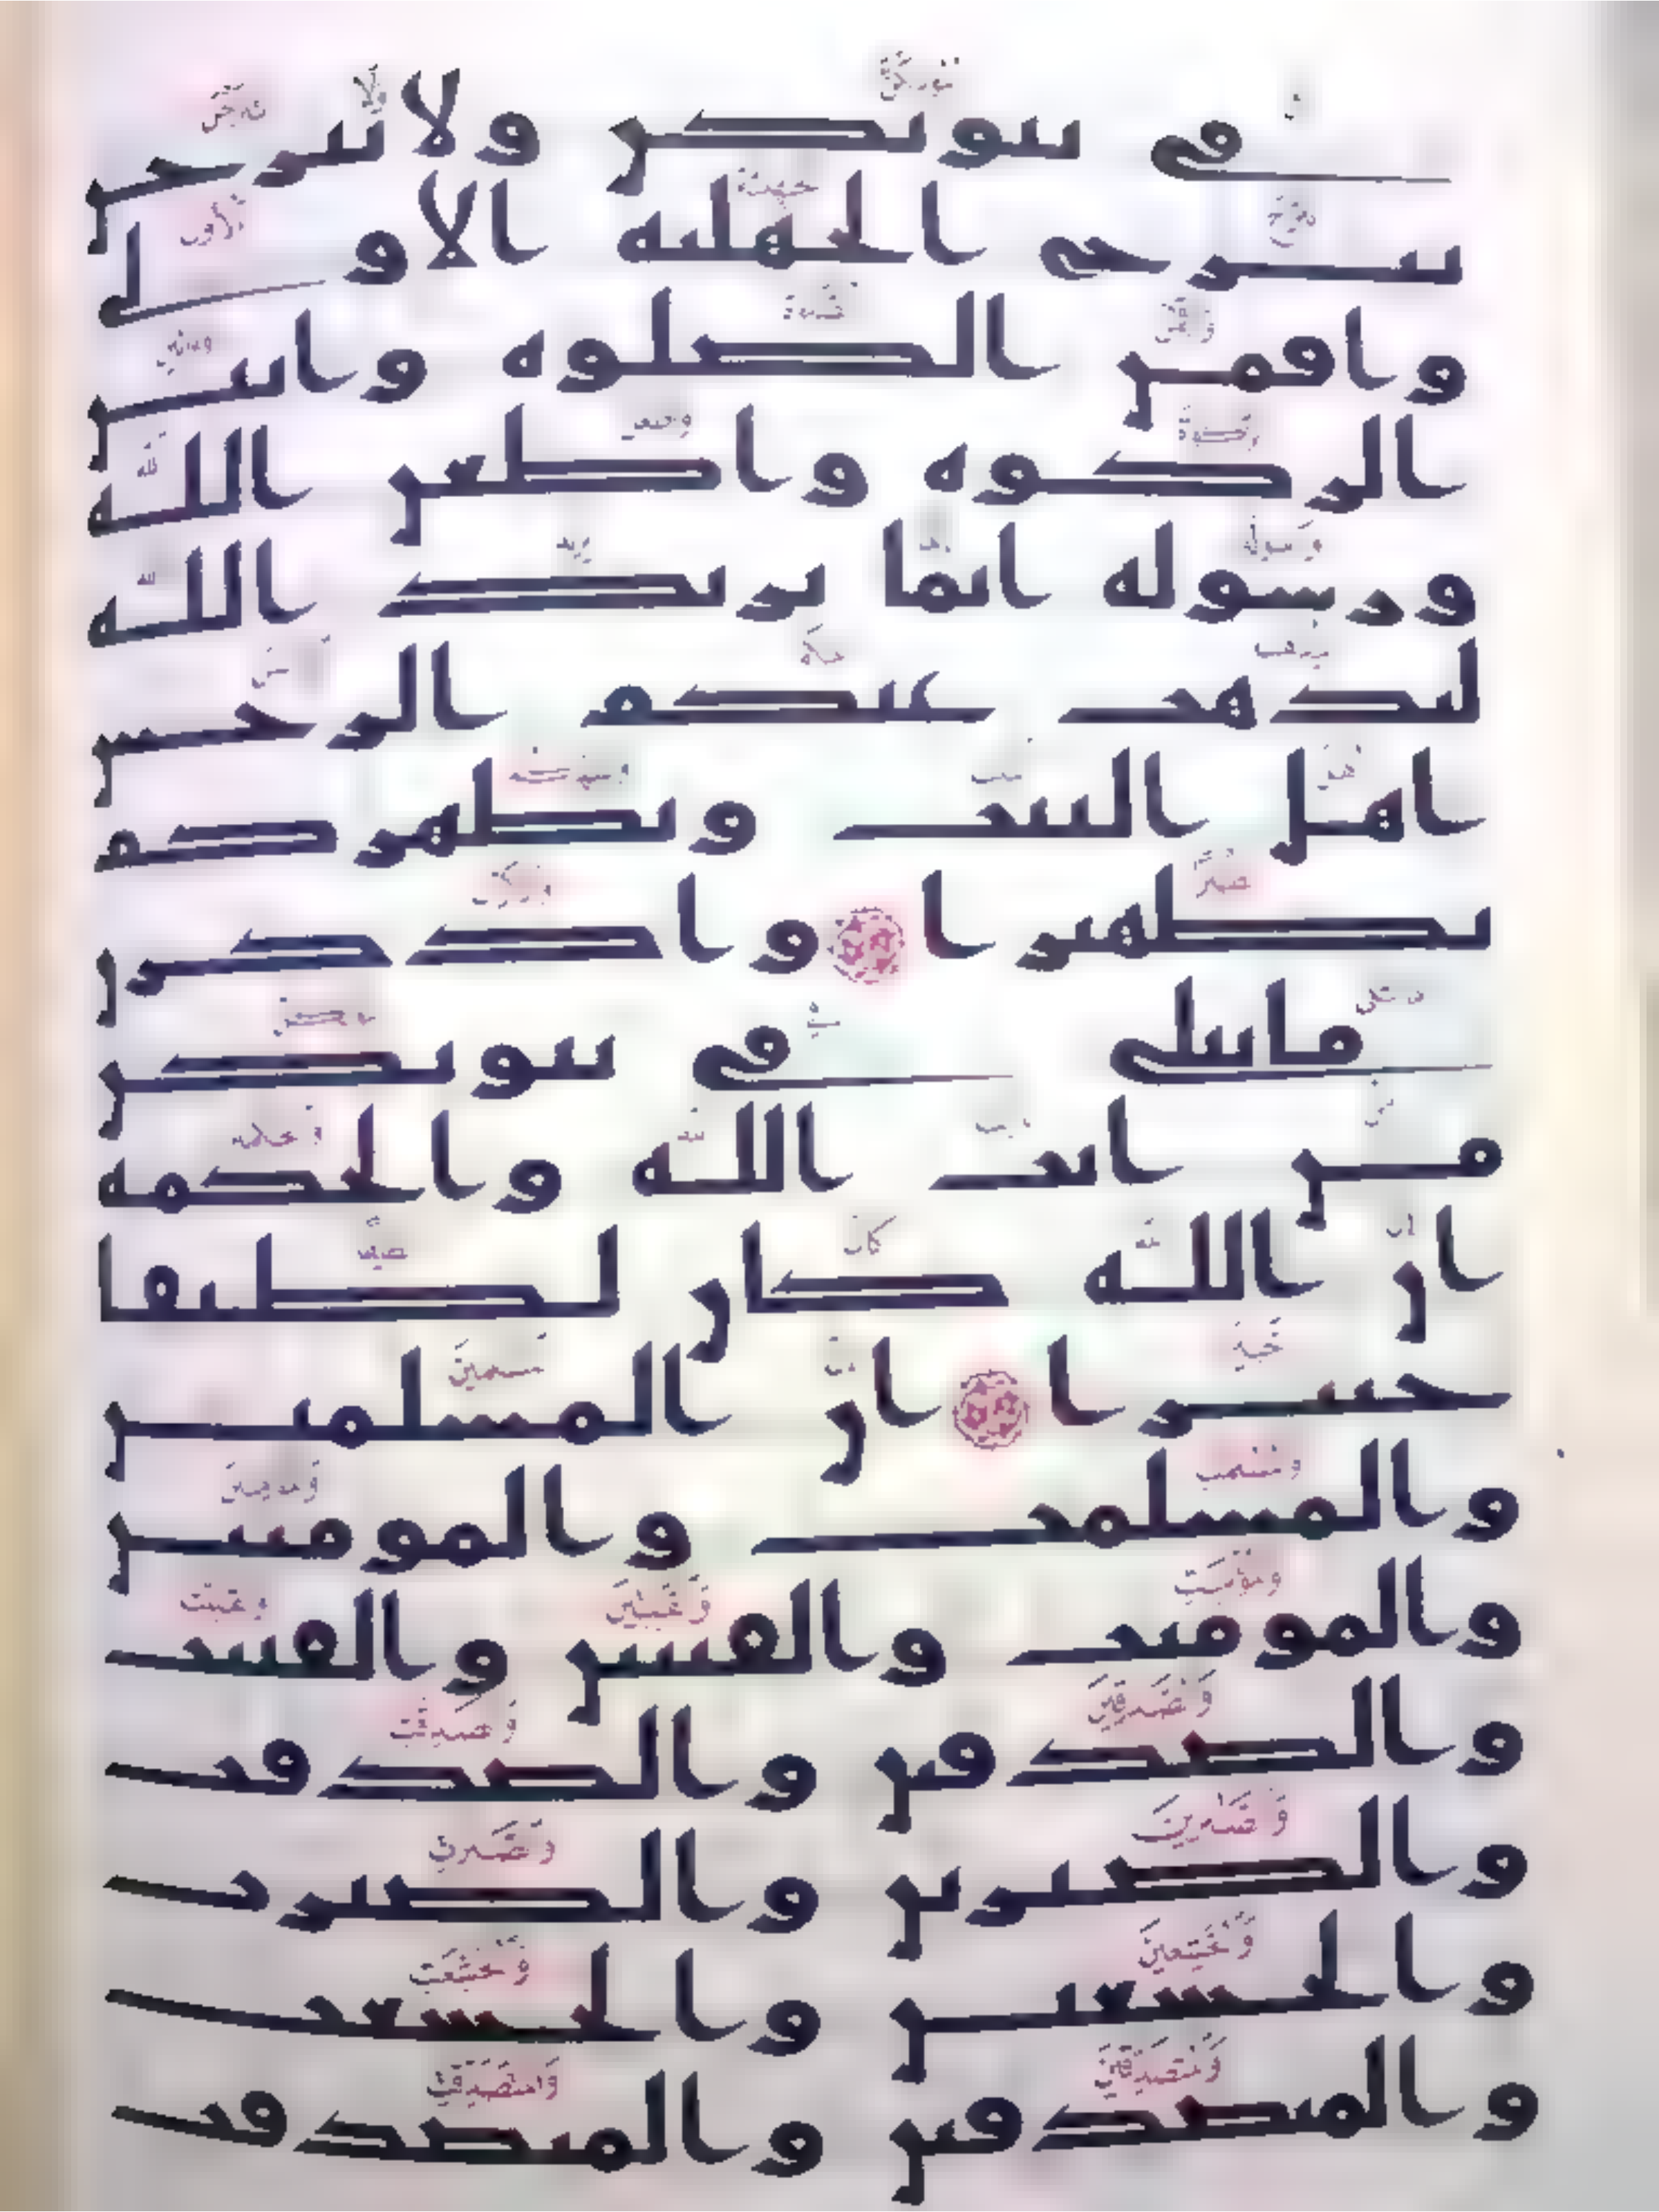 في بيوتكن ولا تبرجن
تبرج الجهلية الاولى
واقمن الصلوة واتين
الزكوة واطعن الله
ورسوله انما يريد الله
ليذهب عنكم الرجس
اهل البيت ويطهركم
تطهيرا واذكرن
ما يتلى في بيوتكن
من ايت الله والحكمة
ان الله كان لطيفا
خبيرا ان المسلمين
والمسلمت والمومنين
والمومنت والقنتين والقنتت
والصدقين والصدقت
والصبرين والصبرت
والخشعين والخشعت
والمتصدقين والمتصدقت